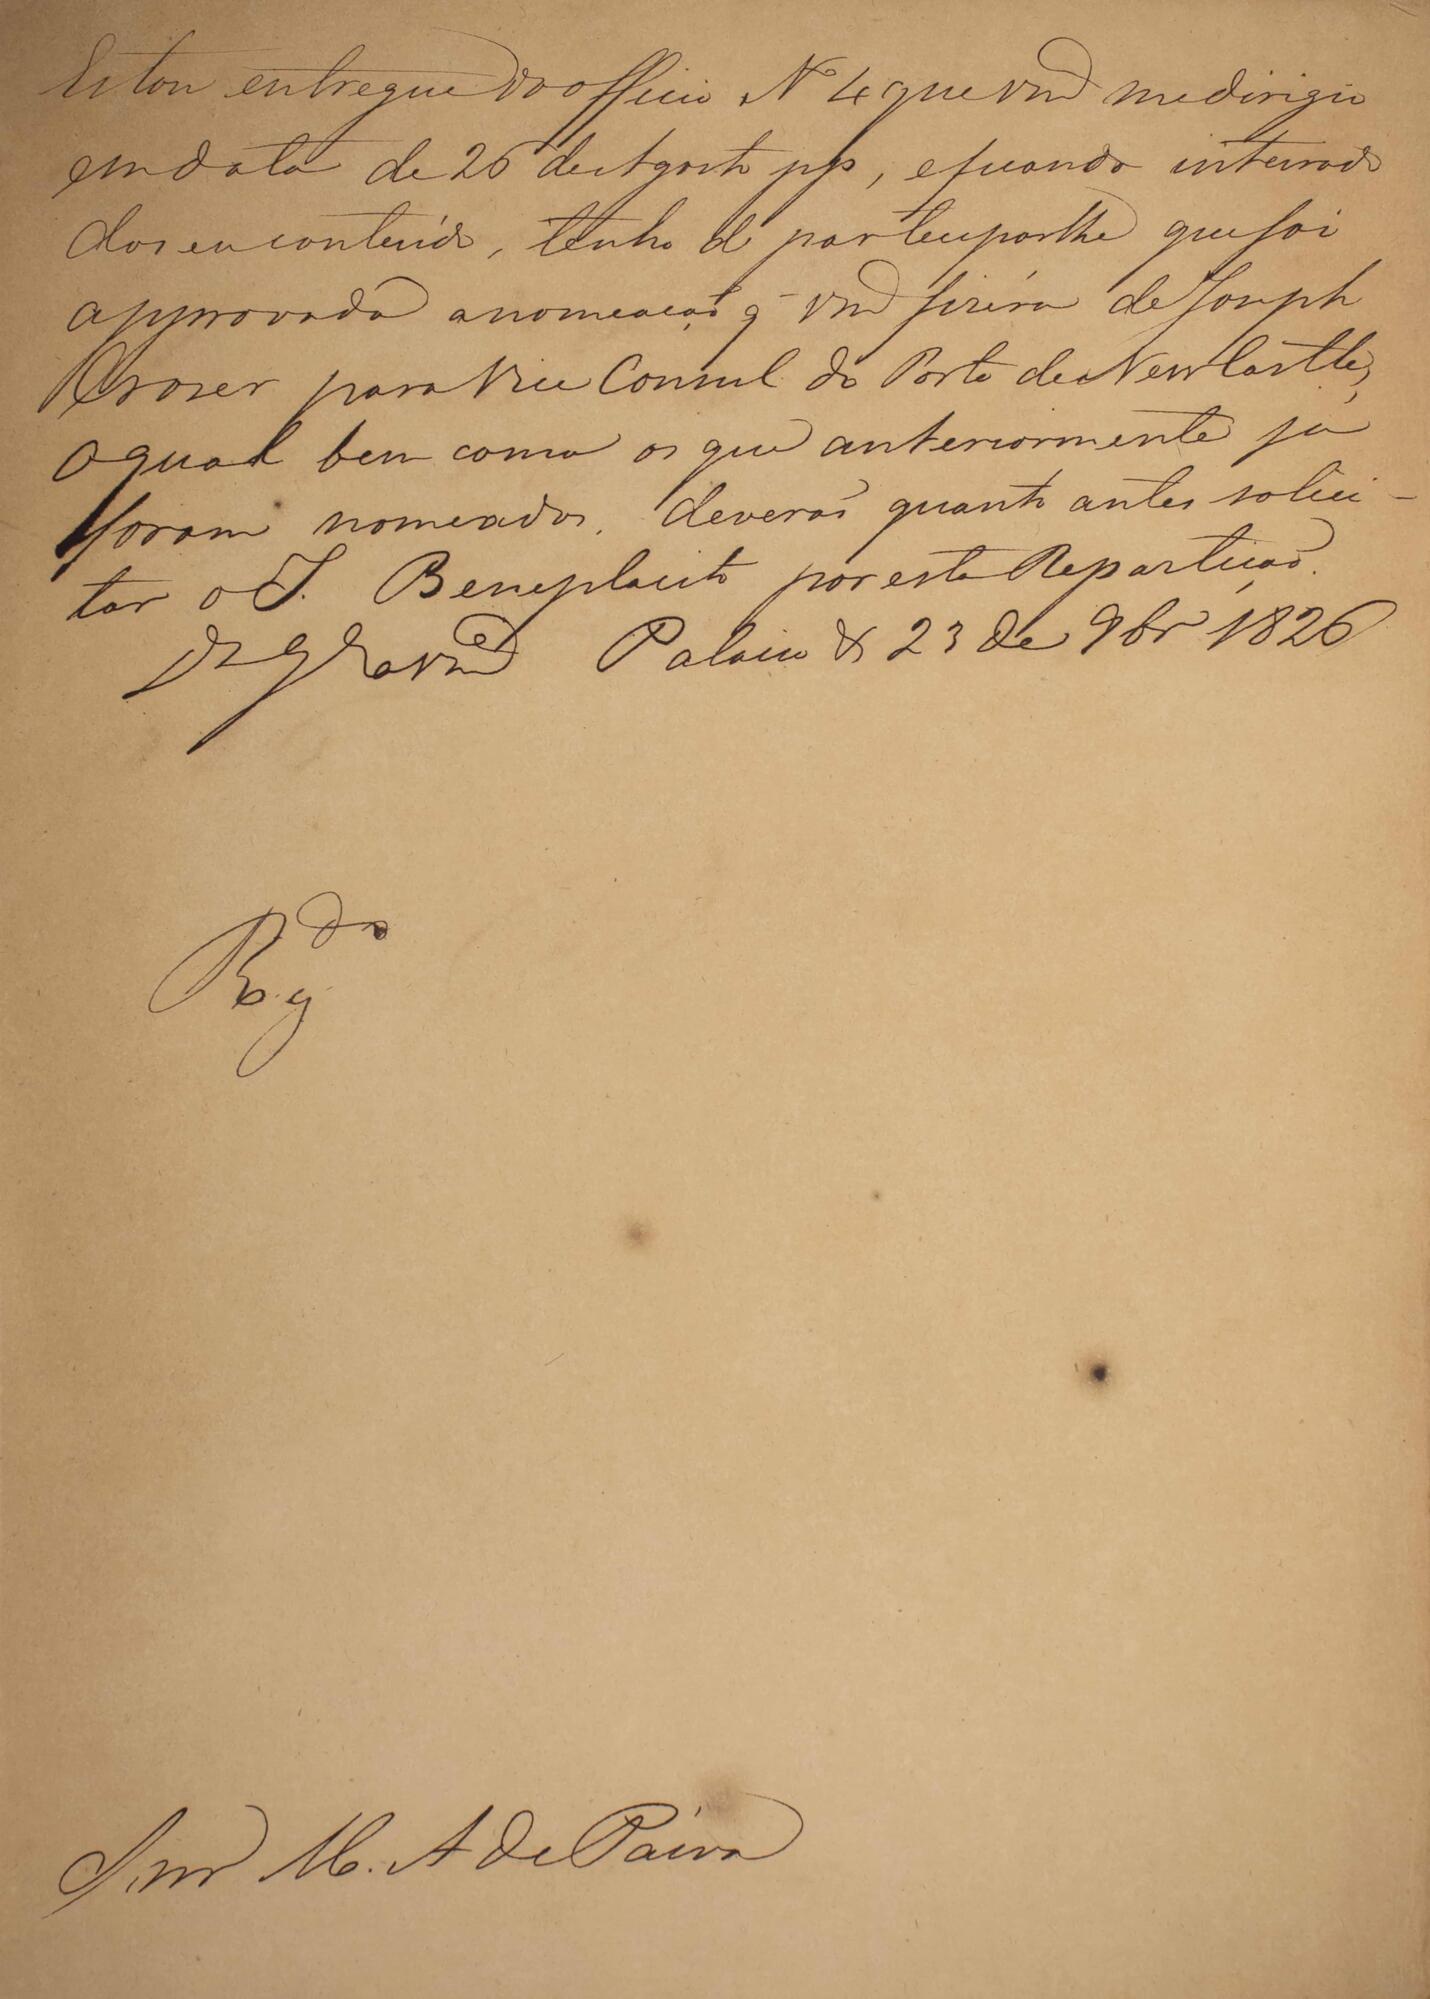 Estou entregue do officio N 4 que Vm me dirigio
em data de 26 de Agosto pp, e ficando inteirado
do seu conteúdo, tenho de participarlhe que foi
approvada a nomeação q̃ Vm fizéra de Joseph
Croser para Vice Consul do Porto de New Castle,
o qual bem como os que anteriormente ja
foram nomeados, deverão quanto antes solici-
tar o I. Beneplacito por esta Repartição.
Ds Gde a Vm Palacio & 23 de 9br 1826
Sm̃r M. A de Paiva